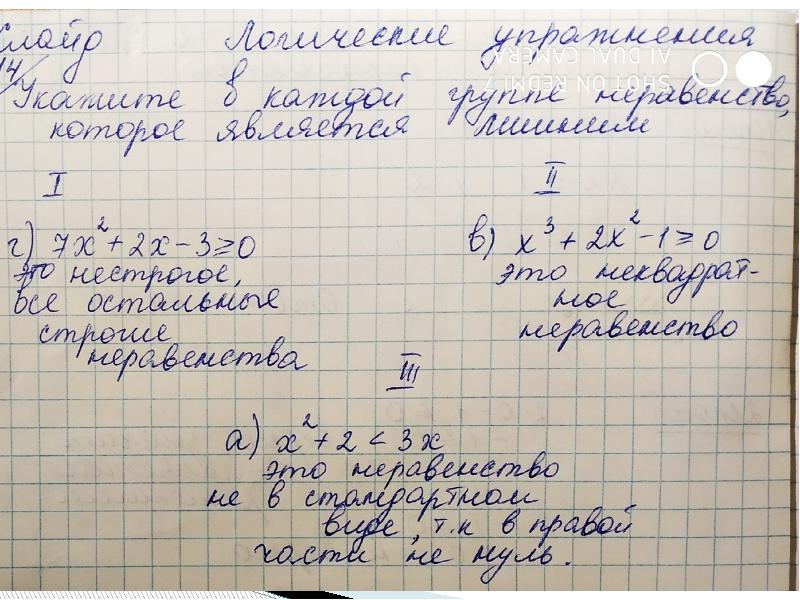 Слайд Логические упражнения
14/
Укажите в каждой группе неравенство,
которое является лишним
I
г) 7x² + 2x - 3 ≥ 0
это нестрогое,
все остальные
строгие
неравенства
II
в) x³ + 2x² - 1 ≥ 0
это неквадрат-
ное
неравенство
III
а) x² + 2 < 3x
это неравенство
не в стандартном
виде, т.к в правой
части не нуль.
SHOT ON REDMI 7
AI DUAL CAMERA